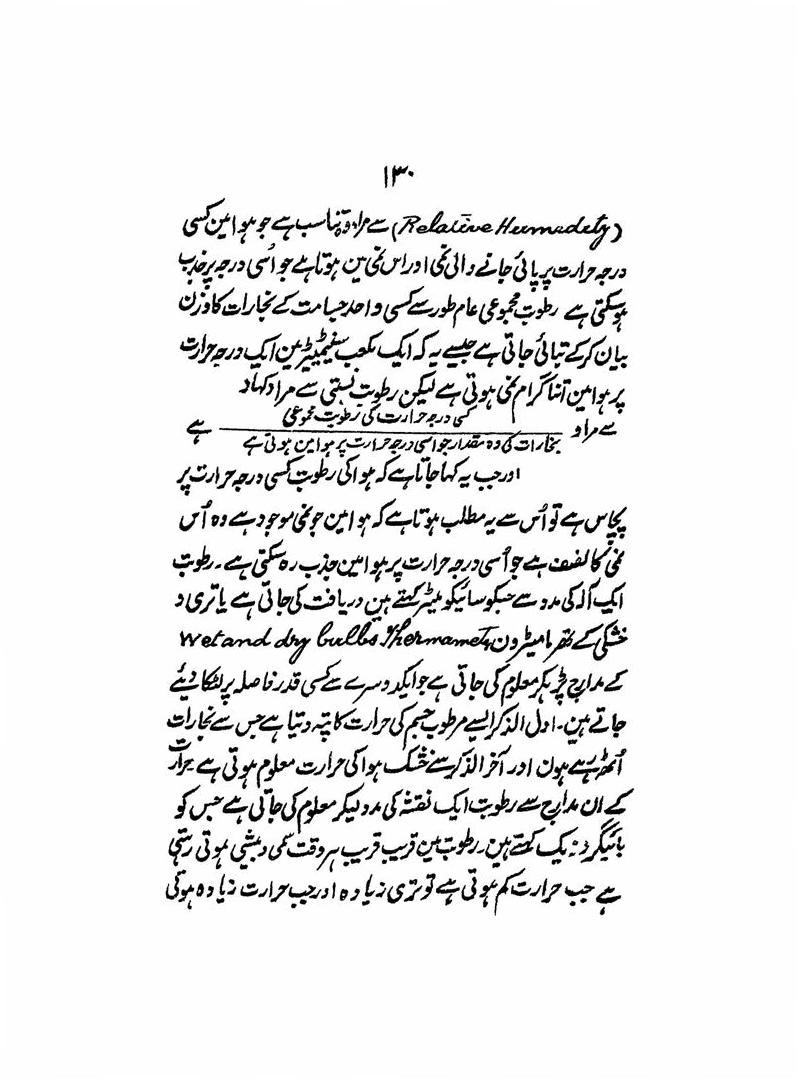 ۱۳۰
(Relative Humedety) سے مراد وہ تناسب ہے جو ہوا مین کسی
درجہ حرارت پر پائی جانے والی نمی اور اس نمی مین ہوتا ہے جو اُسی درجہ پر جذب
ہوسکتی ہے رطوبت مجموعی عام طور سے کسی واحد جسامت کے بخارات کا وزن
بیان کرکے بتائی جاتی ہے جیسے یہ کہ ایک مکعب سینٹیمیٹر مین ایک درجہ حرارت
پر ہوا مین اتنا گرام نمی ہوتی ہے لیکن رطوبت نسبتی سے مراد
کسی درجہ حرارت کی رطوبت مجموعی
سے مراد ہے
بخارات کی وہ مقدار جو اسی درجہ حرارت پر ہوا مین ہوتی ہے
اور جب یہ کہا جاتا ہے کہ ہوا کی رطوبت کسی درجہ حرارت پر
پچاس ہے تو اُس سے یہ مطلب ہوتا ہے کہ ہوا مین جو نمی موجود ہے وہ اُس
نمی کا نصف ہے جو اُسی درجہ حرارت پر ہوا مین جذب رہ سکتی ہے۔ رطوبت
ایک آلہ کی مدد سے جسکو سائیکومیٹر کہتے ہین دریافت کی جاتی ہے یا تری و
خشکی کے تھرمامیٹرون Wet and dry bulbs Thermamety
کے مدارج پڑہکر معلوم کی جاتی ہے جو ایکدوسرے سے کسی قدر فاصلہ پر لٹکا دیئے
جاتے ہین۔ اول الذکر ایسے مرطوب جسم کی حرارت کا پتہ دیتا ہے جس سے بخارات
اُٹھ رہے ہون اور آخر الذکر سے خشک ہوا کی حرارت معلوم ہوتی ہے حرارت
کے ان مدارج سے رطوبت ایک نقشہ کی مدد لیکر معلوم کی جاتی ہے جس کو
کہتے ہین۔ رطوبت مین قریب قریب ہر وقت کمی و بیشی ہوتی رہتی
ہے جب حرارت کم ہوتی ہے تو تری زیادہ اور جب حرارت زیادہ ہوئی